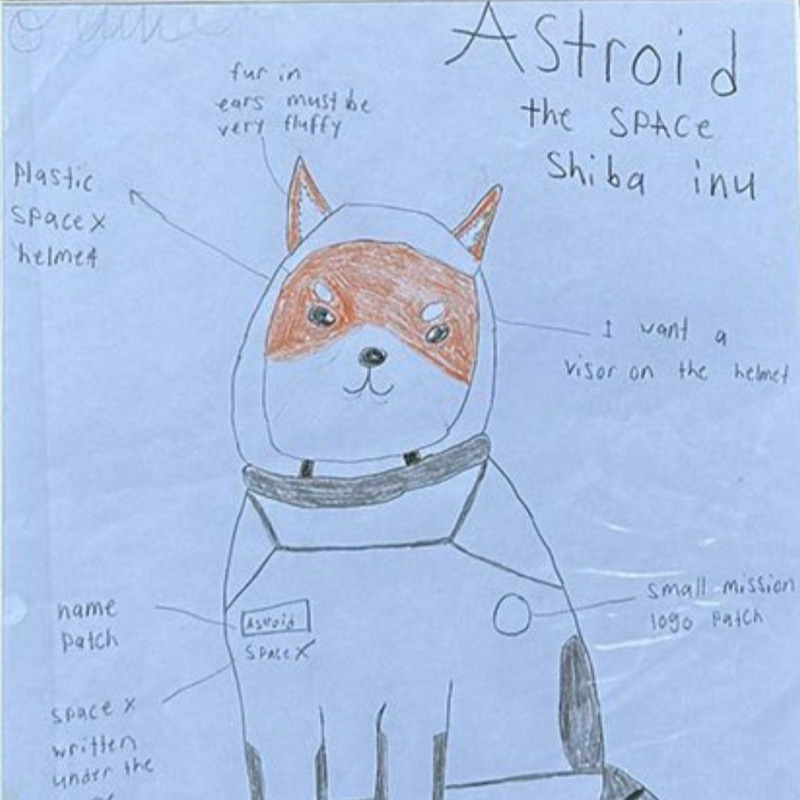 Astroid
the SPACE
Shiba inu
fur in
ears must be
very fluffy
Plastic
space x
helmet
I want a
visor on the helmet
name
patch
Astroid
SPACEX
small mission
logo patch
space x
written
under the